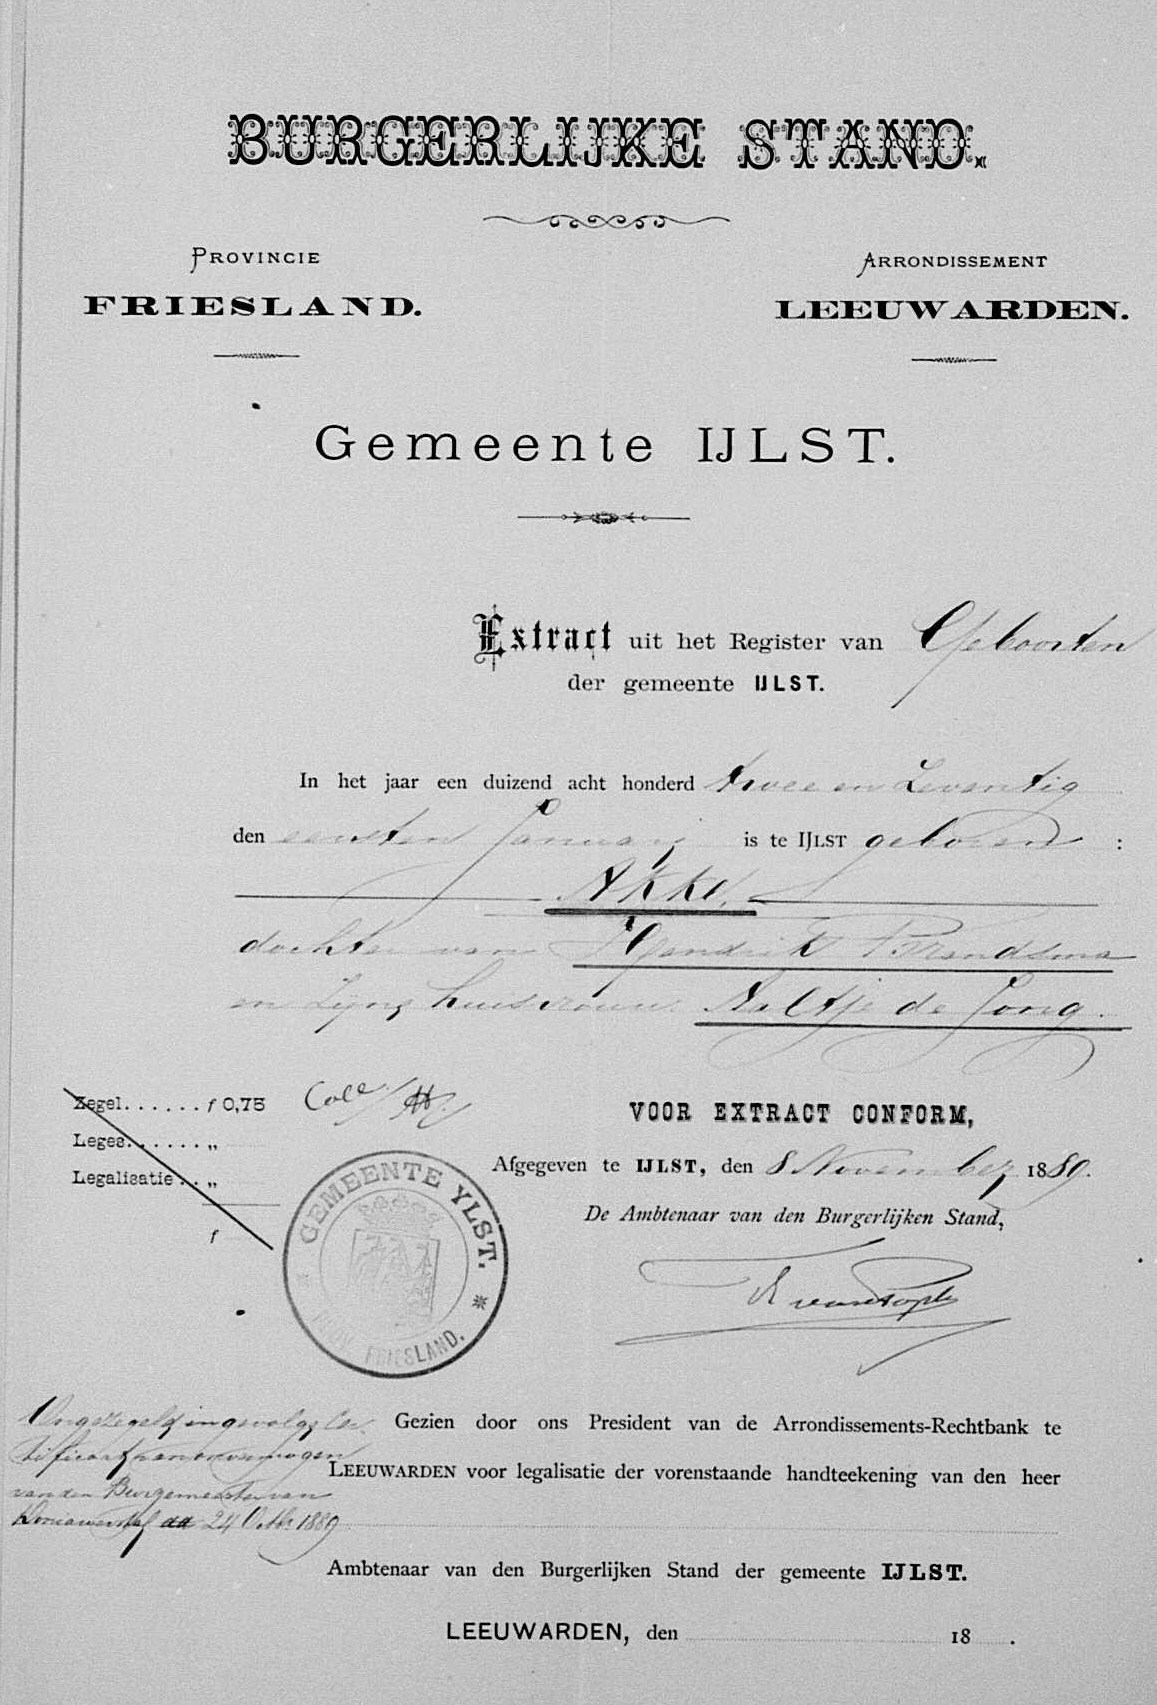 BURGERLIJKE STAND.
PROVINCIE
FRIESLAND.
ARRONDISSEMENT
LEEUWARDEN.
Gemeente IJLST.
Extract uit het Register van Geboorten
der gemeente IJLST.
In het jaar een duizend acht honderd twee en Zeventig
den eersten Januarij is te IJLST geboren :
Akke,
dochter van Hendrik Brandsma
en Zijne huisvrouw Aaltje de Jong.
Zegel. . . . . . . f 0,75
Leges. . . . . . . „
Legalisatie . . „
f
Coll.
VOOR EXTRACT CONFORM,
Afgegeven te IJLST, den 8 November 1889.
De Ambtenaar van den Burgerlijken Stand,
GEMEENTE YLST.
FRIESLAND.
Ongezegeld ingevolge Cer-
tificaat van onvermogen
van den Burgemeester van
Doniawerstal dd 24 Octbr 1889
Gezien door ons President van de Arrondissements-Rechtbank te
LEEUWARDEN voor legalisatie der vorenstaande handteekening van den heer
Ambtenaar van den Burgerlijken Stand der gemeente IJLST.
LEEUWARDEN, den 18 .